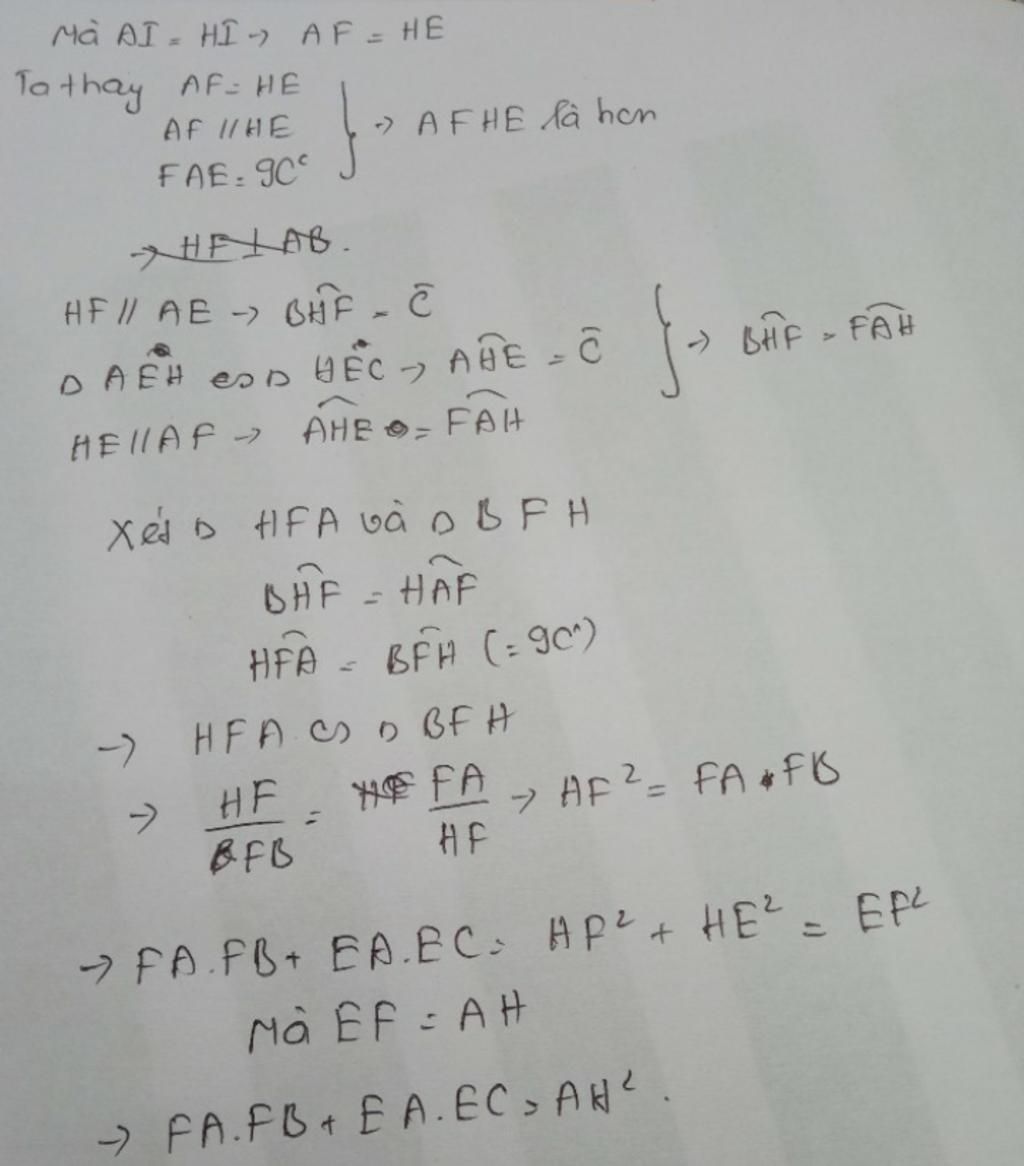 Mà AI = HI → AF = HE
Ta thay AF = HE
AF // HE } → AFHE là hcn
FAE = 90°
→ HF ⊥ AB.
HF // AE → BĤF = Ĉ
Δ AEH ∽ Δ HEC → AĤE = Ĉ } → BĤF = FÂH
HE // AF → AĤE = FÂH
Xét Δ HFA và Δ BFH
BĤF = HÂF
HF̂A = BF̂H (= 90°)
→ HFA ∽ Δ BFH
→ HF/FB = FA/HF → HF² = FA . FB
→ FA.FB + EA.EC = HF² + HE² = EF²
Mà EF = AH
→ FA.FB + EA.EC = AH².